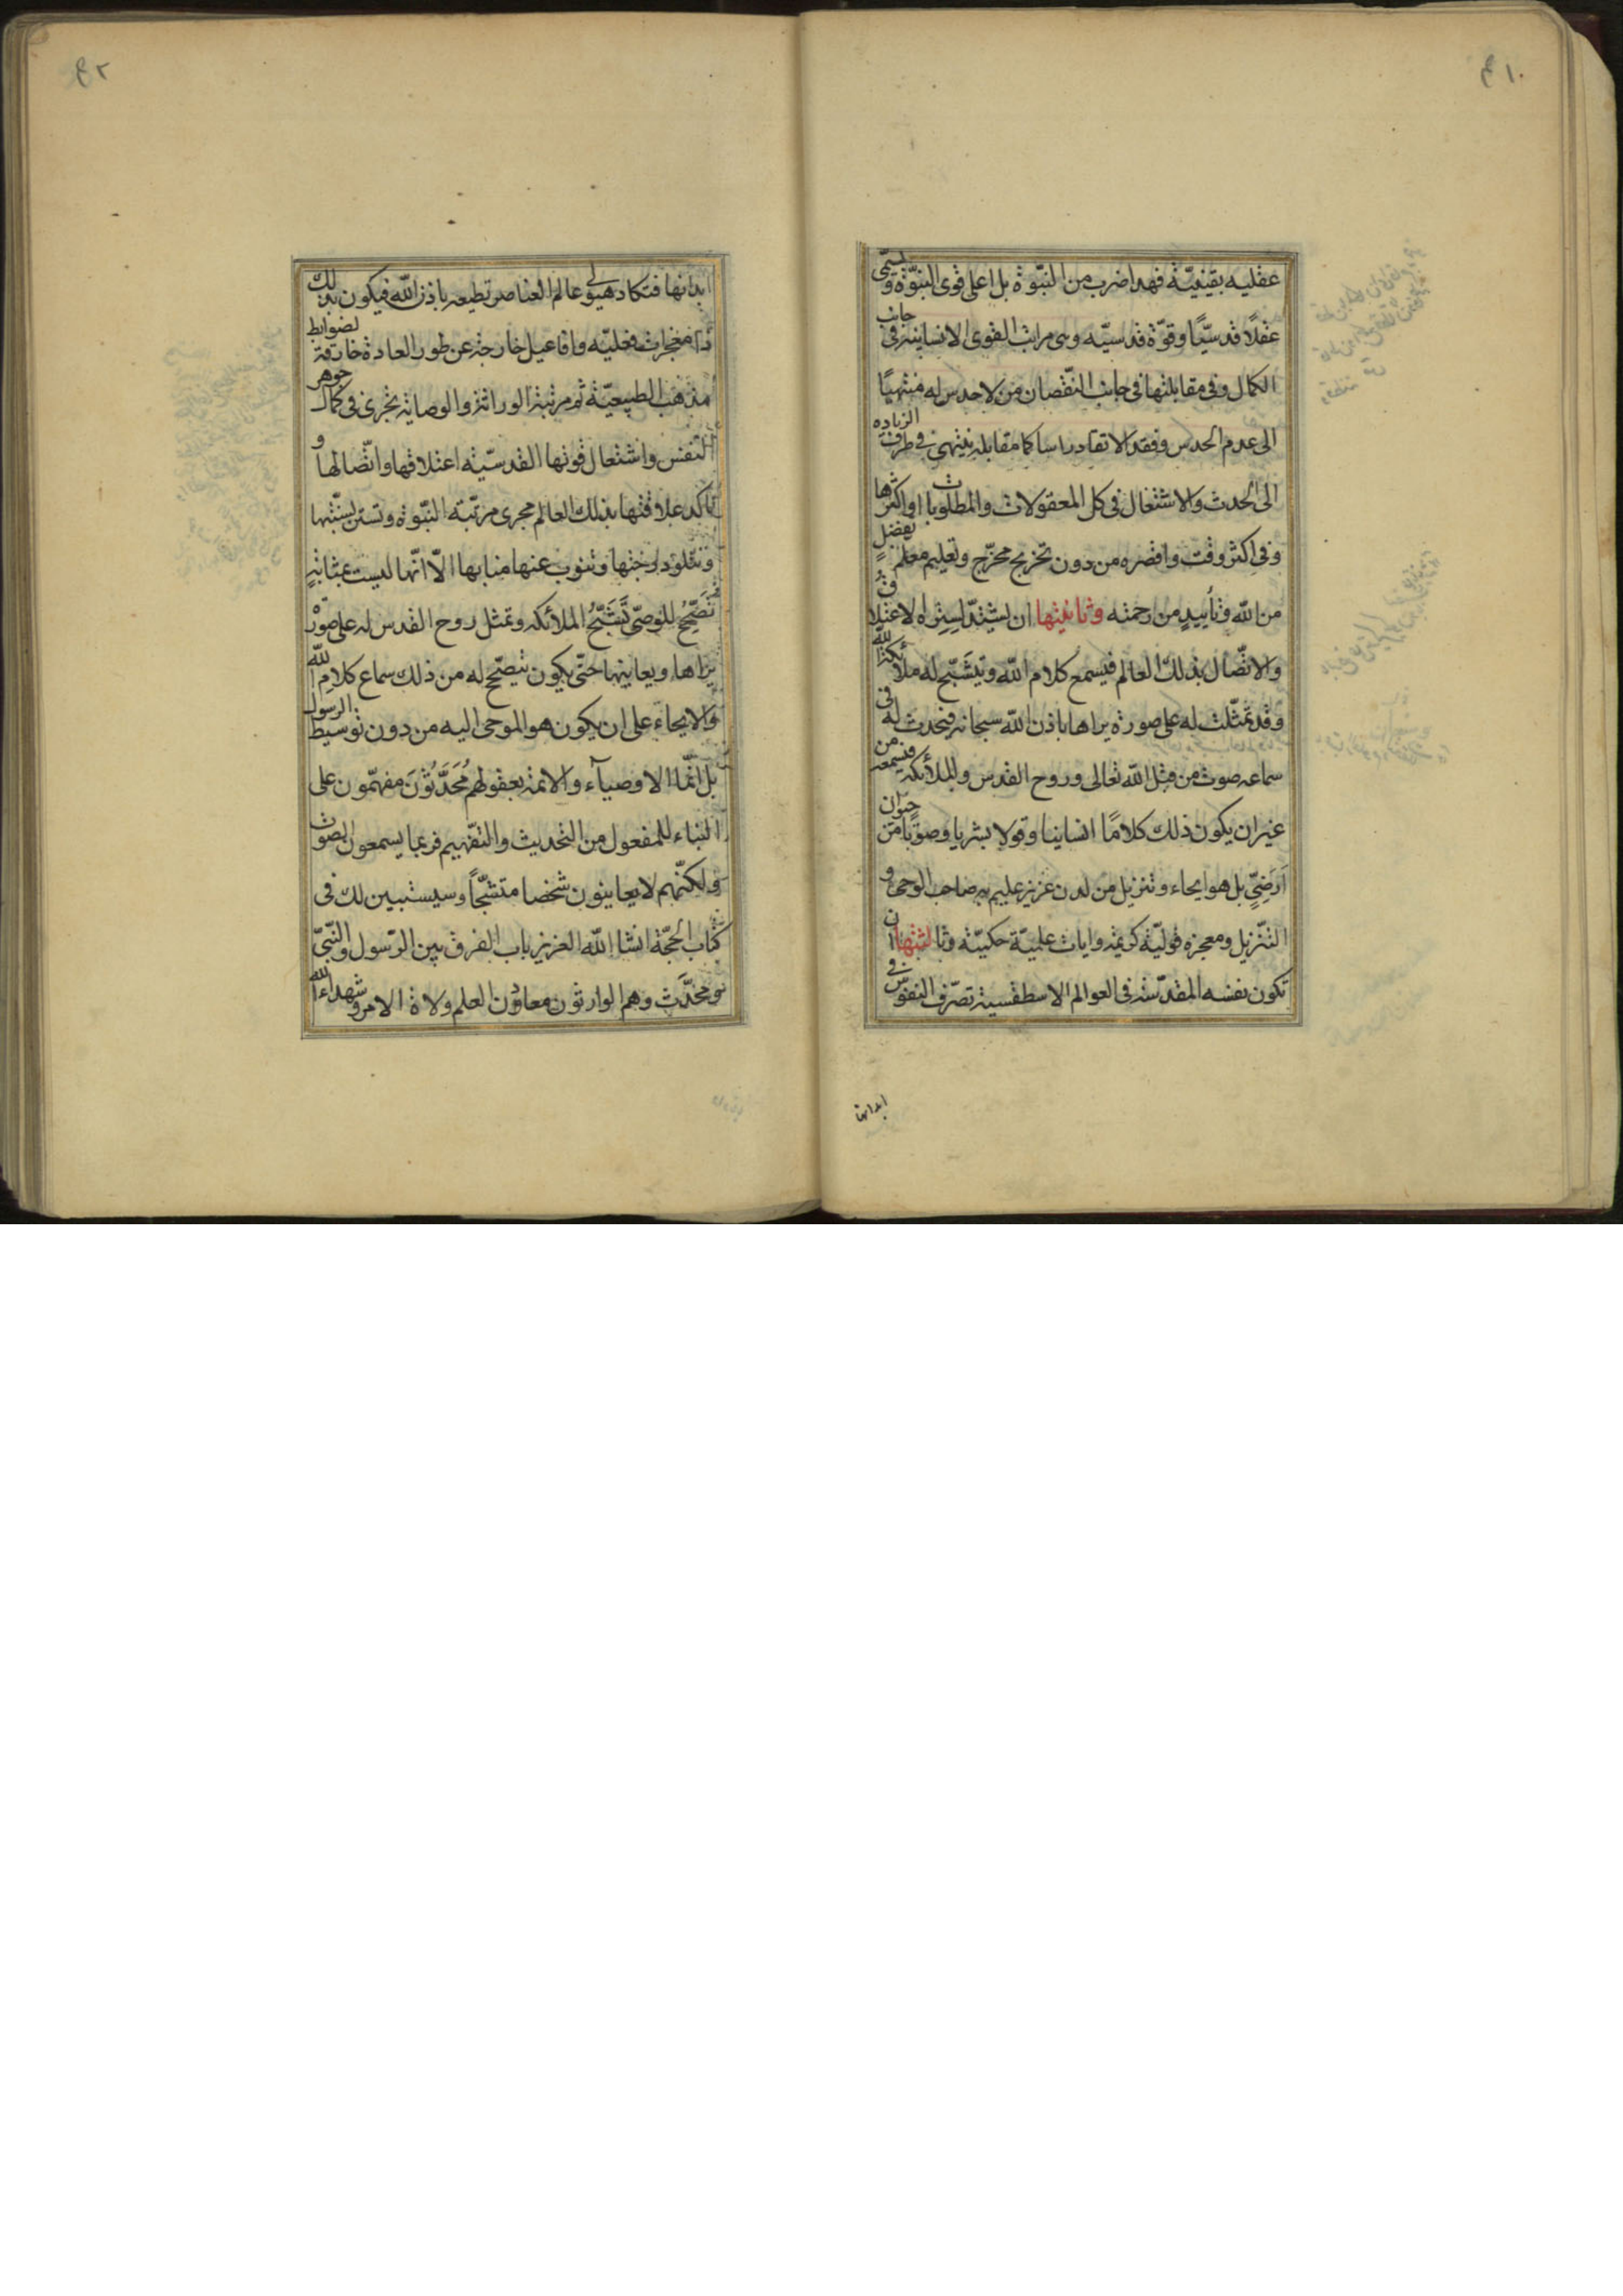 عقلیه یقینیّة فهذا ضرب من النبّوة بل اعلی قوی النبوّة و یسمّی
عقلًا قدسیًّا وقوّة قدسیّه وهی مراتب القوی الانسانیة فی جانب
الکمال وفی مقابلتها فی جانب النّقصان من لا حدس له منتهیًا
الی عدم الحدس وفقد الاتقاد راسا کما مقابله ینتهی فی طرف الزیاده
الی الحدث والاشتغال فی کل المعقولات والمطلوبات او اکثرها
وفی اکثر وقت واقصره من دون تخریج مخرّج وتعلیم معلم بفضلٍ
من الله وتأییدٍ من رحمته وثانیتها ان یشتدّ استواه لاعتلاق
والاتّصال بذلک العالم فیسمع کلام الله ویتشبّح له ملائکة الله
وقد تمثّلت له علی صورة یراها باذن الله سبحانه فیحدث له فی
سماعه صوت من قبل الله تعالی وروح القدس والملائکه فیسمعه من
غیر ان یکون ذلک کلامًا انسانیا وقولا بشریا وصوتًا من حیوان
ارضیٍّ بل هو ایحاء وتنزیل من لدن عزیز علیم به صاحب الوحی و
التّنزیل ومعجزه قولیّة کریمة وایات علمیّة حکمیّة وثالثتها ان
تکون نفسه المقدّسة فی العوالم الاسطقسیة تصرّف النفوس فی
ابدانها
ابدانها فتکاد هیولی عالم العناصر تطیعه باذن الله فیکون بذلک
ذا معجزات فعلیّه وافاعیل خارجة عن طور العادة خارقة لضوابط
مذهب الطبیعیّة ثم مرتبة الوراثة والوصایة تجری فی کمال جوهر
النّفس واشتعال قوتها القدسیّة اعتلاقها واتّصالها و
تاکد علاقتها بذلک العالم مجری مرتّبة النّبوة وتستن بسنّتها
وتتلو درجتها وتنوب عنها منابها الّا انّها لیست بمثابةٍ
تصحّح للوصیّ تشبّح الملائکه وتمثل روح القدس له علی صورة
یراها ویعاینها حتّی یکون یتصحّح له من ذلک سماع کلام الله
والایحاء علی ان یکون هو الموحی الیه من دون توسیط الرسول
بل انّما الاوصیآء والائمة بعقولهم مُحَدَّثُونَ مفهّمون علی
البناء للمفعول من التحدیث والتفهیم فربما یسمعون الصوت
ولکنّهم لا یعاینون شخصا متشبّحاً وسیستبین لک فی
کتاب الحجّة انشا الله العزیز باب الفرق بین الرّسول والنّبیّ
والمحدَّث وهم الوارثون معادن العلم ولاة الامر وشهداء الله